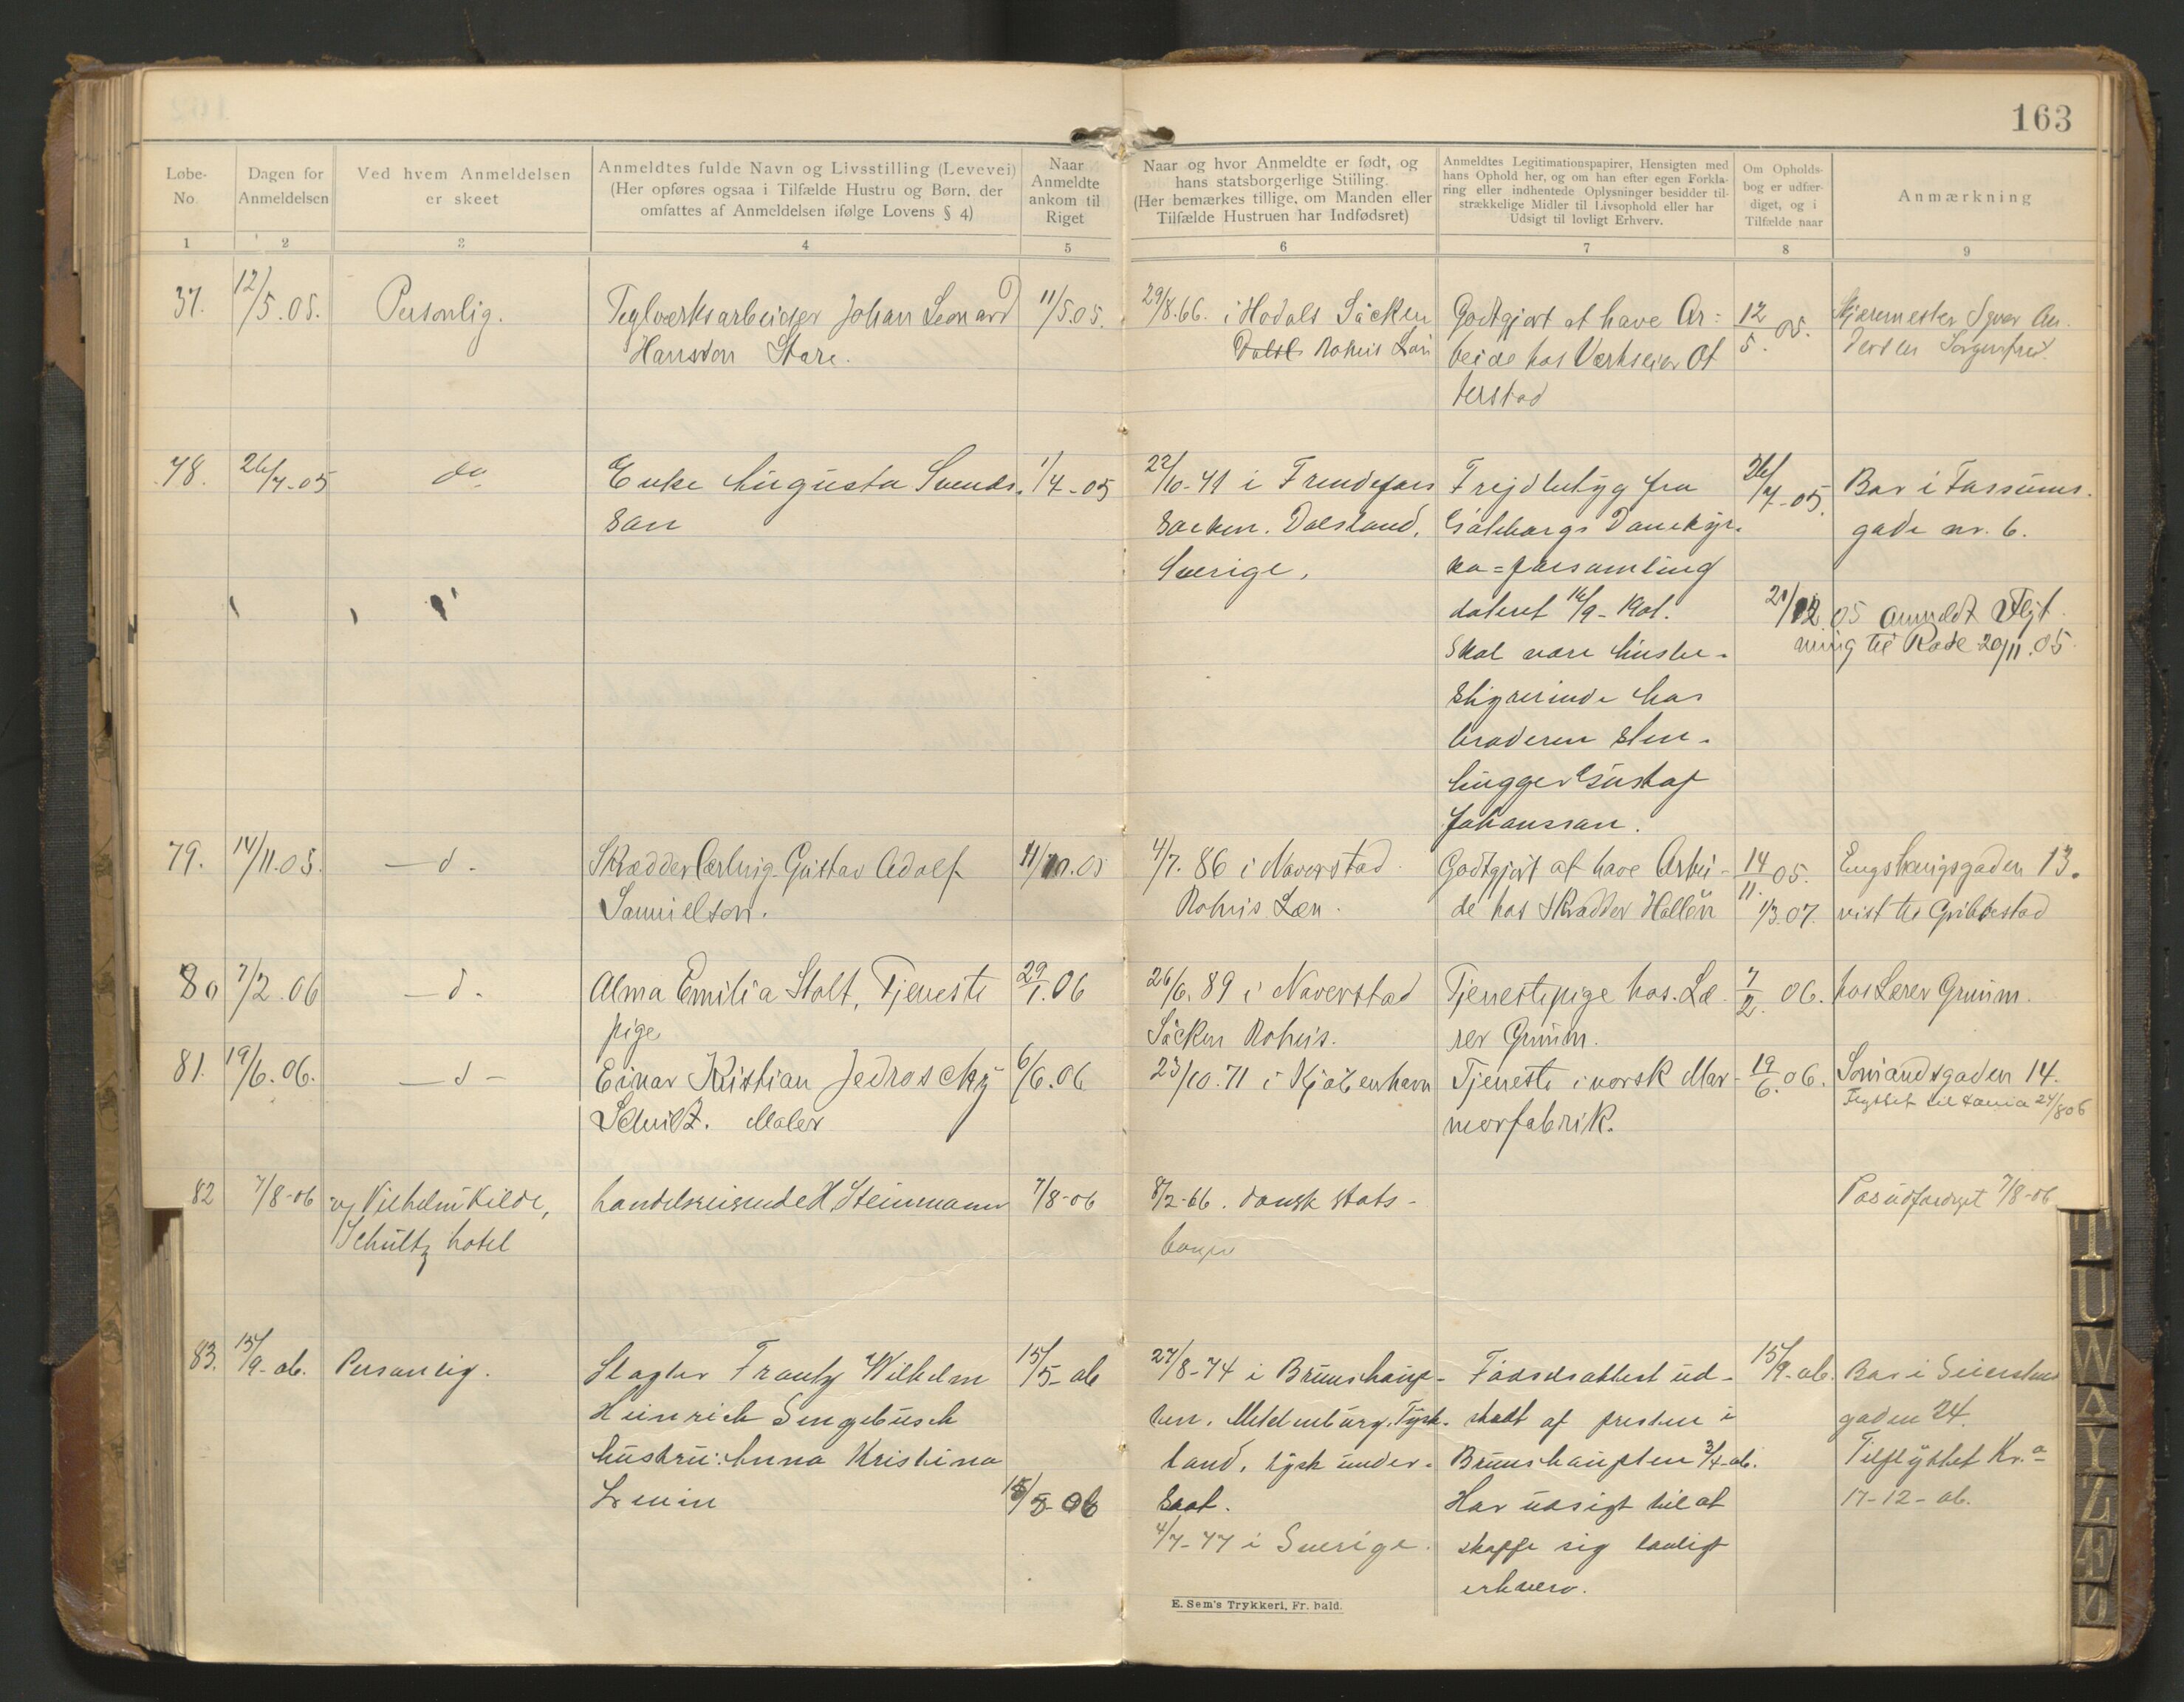 163
Løbe-
No.
Dagen for
Anmeldelsen
Ved hvem Anmeldelsen
er skeet
Anmeldtes fulde Navn og Livsstilling (Levevei)
(Her opføres ogsaa i Tilfælde Hustru og Børn, der
omfattes af Anmeldelsen ifølge Lovens § 4)
Naar
Anmeldte
ankom til
Riget
Naar og hvor Anmeldte er født, og
hans statsborgerlige Stilling.
(Her bemærkes tillige, om Manden eller
Tilfælde Hustruen har Indfødsret)
Anmeldtes Legitimationspapirer, Hensigten med
hans Ophold her, og om han efter egen Forkla-
ring eller indhentede Oplysninger besidder til-
strækkelige Midler til Livsophold eller har
Udsigt til lovligt Erhverv.
Om Opholds-
bog er udfær-
diget, og i
Tilfælde naar
Anmærkning
1 2 3 4 5 6 7 8 9
37. 12/5.05. Personlig.
Teglværksarbeider Johan Leonard
Hansson Stare.
11/5.05.
29/8.66. i Hodals Säcken
Dalsl. Bohus Län
Godtgjort at have Ar-
beide hos Værkseier Ot
terstad
12/5. 05.
Andersen Sorgenfrei.
78. 26/7-05 do
Enke Augusta Svends-
son
1/7-05
22/10-41 i
Socken. Dalsland.
Sverige.
Frejdebetyg fra
Göteborgs Domkyr-
ka=forsamling
dateret 16/9-1901.
Skal være husbe-
styrerinde hos
broderen sten-
hugger Gustaf
Johansson.
26/7-05.
Bor i Fossums-
gade nr. 6.
21/12 05 anmeldt Flyt
ning til Rode 20/11.05.
79. 14/11.05. — d -
Skrædderlærling Gustav Adolf
Samielson.
11/10.05
4/7. 86 i Naverstad
Bohus Læn.
Godtgjort at have Arbei-
de hos Skrædder Hallén
14/11. 05.
1/3.07.
Engshaugsgaden 13.
reist til Gribbestad
80 7/2.06 — d -
Alma Emilia Stolt, Tjeneste
pige
29/1.06
26/6. 89 i Naverstad
Säcken Bohus.
Tjenestepige hos. Læ-
rer Grimm.
7/2. 06.
hos Lærer Grimm.
81. 19/6.06. — d —
Einar Kristian Jedroscky
Schultz. Maler
6/6.06
23/10.71 i Kjøbenhavn
Tjeneste i norsk Mar-
morfabrik.
19/6. 06.
Sømandsgaden 14.
Flyttet til 24/8 06
82 7/8-06 v/ Vilhelm Kilde,
Schultz hotel
handelsreisende H. Steinmann
7/8-06
8/2-66. dansk stats-
borger
Pas udfærdiget 7/8-06
83. 15/9-06. Personlig.
Slagter Frantz Wilhelm
Heinrich Sengebusch
hustru: Anna Kristina
15/5-06
15/5-06
27/8-74 i Brunshaup-
ten. Meklenburg. Tysk-
land, tysk under-
saat.
4/7-77 i Sverige.
Fødselsattest ud-
stedt af presten i
Brunshaupten 3/4-06.
Har udsigt til at
skaffe sig lovligt
erhverv.
15/9-06.
Bor i Seierstens
gaden 24.
Tilflyttet Kr.a
17-12-06.
E. Sem's Trykkeri, Fr. hald.
T
U
W
Y
Z
Æ
Ø